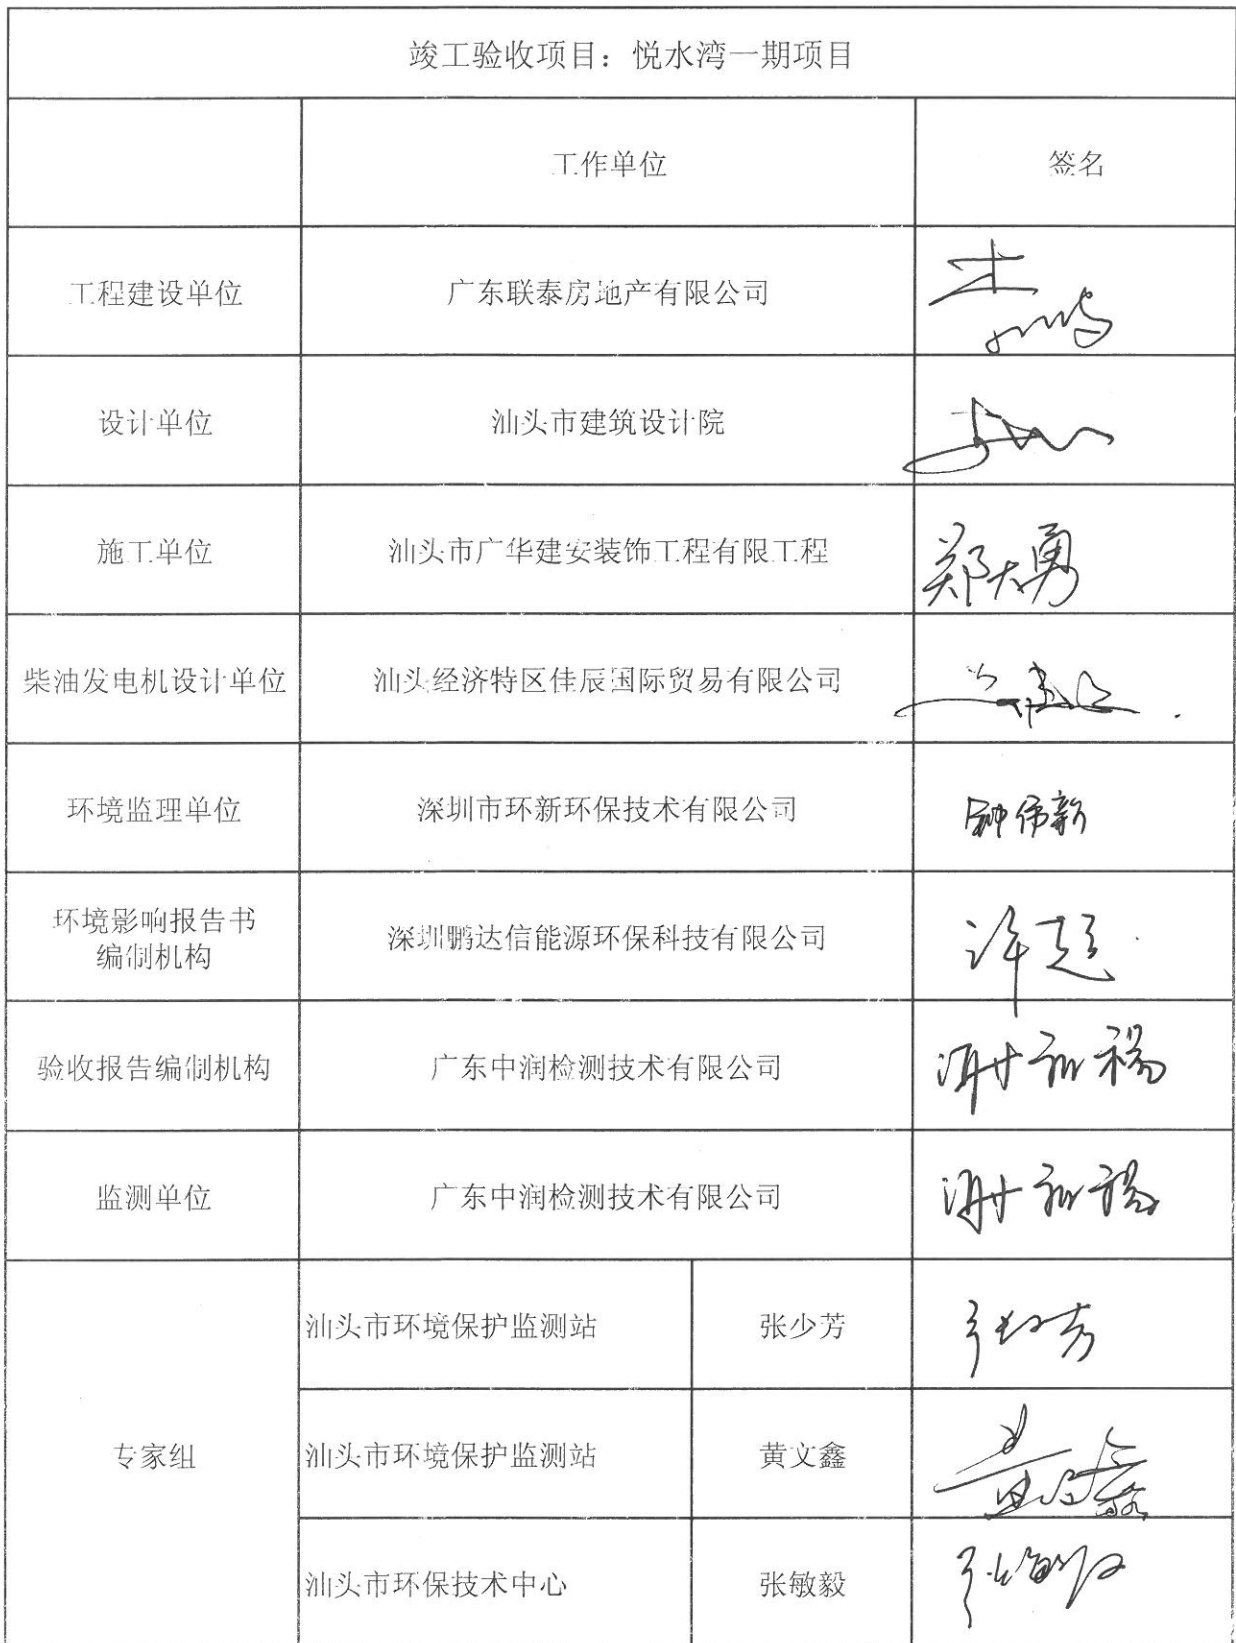 竣工验收项目：悦水湾一期项目
工作单位 签名
工程建设单位 广东联泰房地产有限公司
设计单位 汕头市建筑设计院
施工单位 汕头市广华建安装饰工程有限工程 郑大勇
柴油发电机设计单位 汕头经济特区佳辰国际贸易有限公司
环境监理单位 深圳市环新环保技术有限公司 钟伟新
环境影响报告书
编制机构 深圳鹏达信能源环保科技有限公司 许超
验收报告编制机构 广东中润检测技术有限公司
监测单位 广东中润检测技术有限公司
专家组
汕头市环境保护监测站 张少芳 张少芳
汕头市环境保护监测站 黄文鑫 黄文鑫
汕头市环保技术中心 张敏毅 张敏毅